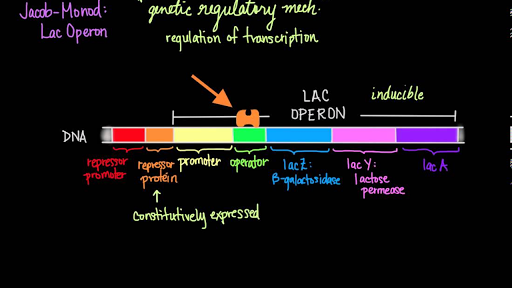 Jacob-Monod:
Lac Operon
genetic regulatory mech.
regulation of transcription
LAC
OPERON
inducible
DNA
repressor
promoter
repressor
protein
promoter
operator
lacZ:
β-galactosidase
lacY:
lactose
permease
lacA
constitutively expressed